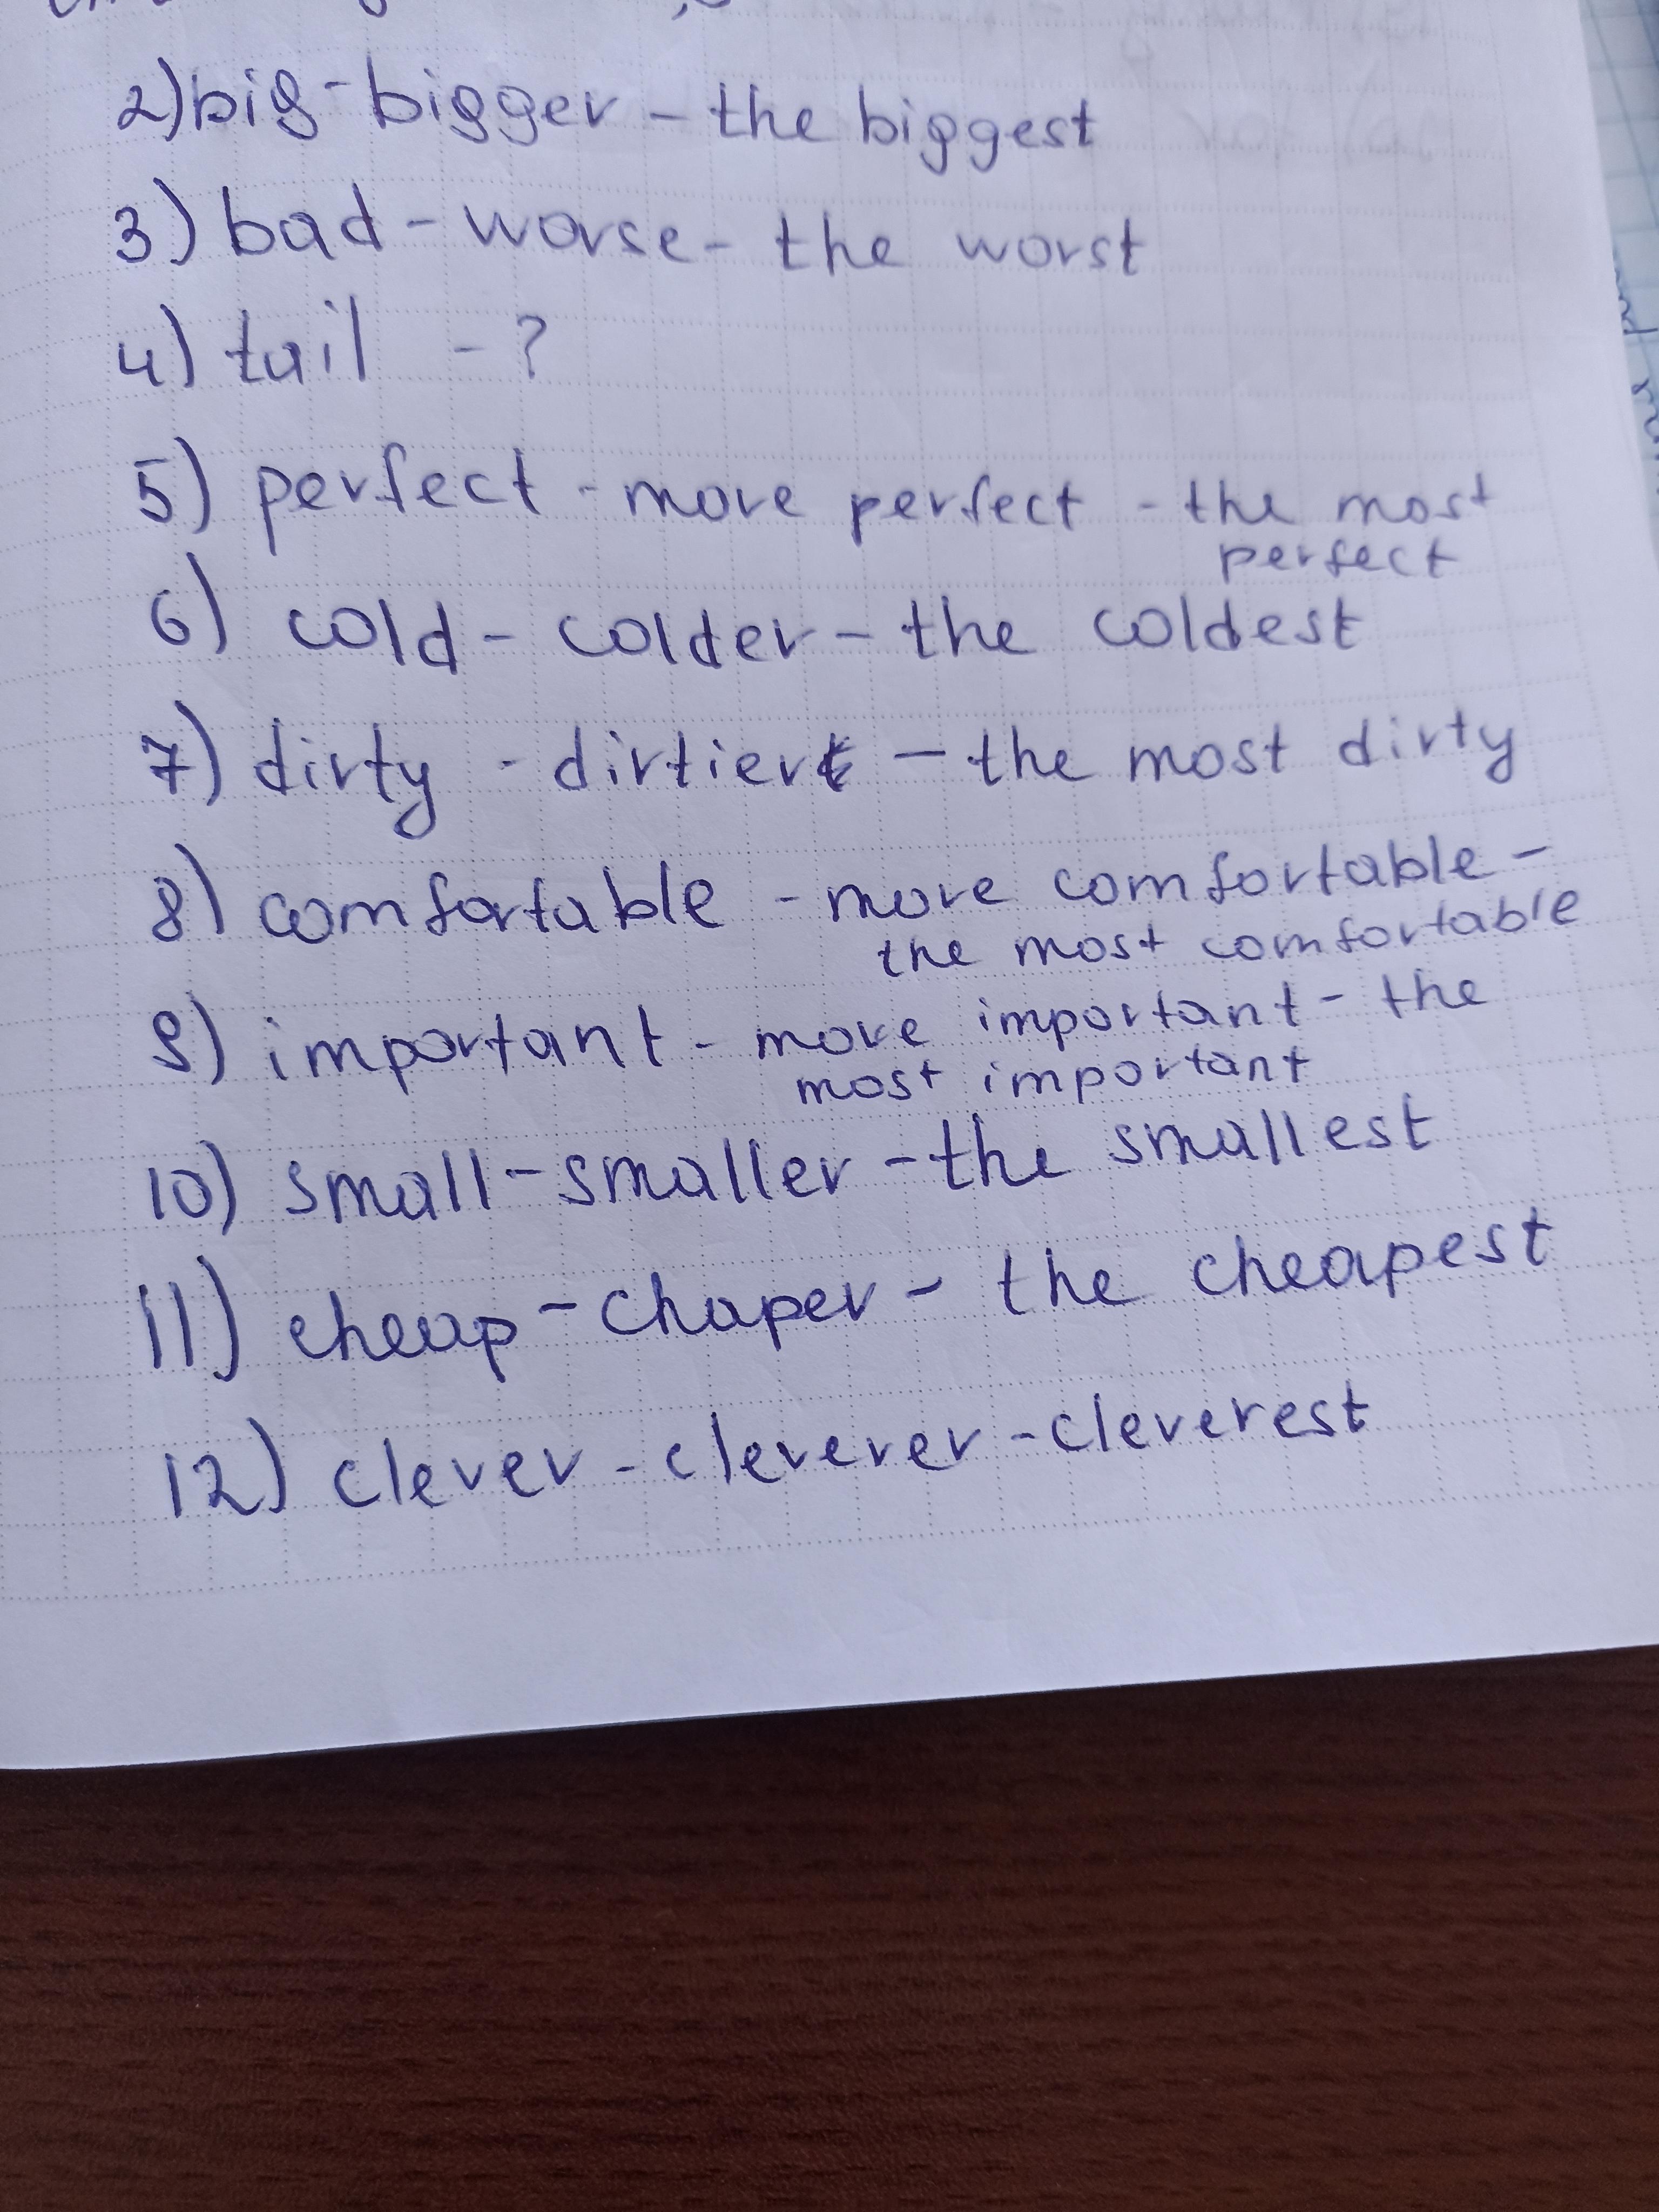 2) big - bigger - the biggest
3) bad - worse - the worst
4) tail - ?
5) perfect - more perfect - the most
perfect
6) cold - colder - the coldest
7) dirty - dirtier - the most dirty
8) comfortable - more comfortable -
the most comfortable
9) important - more important - the
most important
10) small - smaller - the smallest
11) cheap - chaper - the cheapest
12) clever - cleverer - cleverest